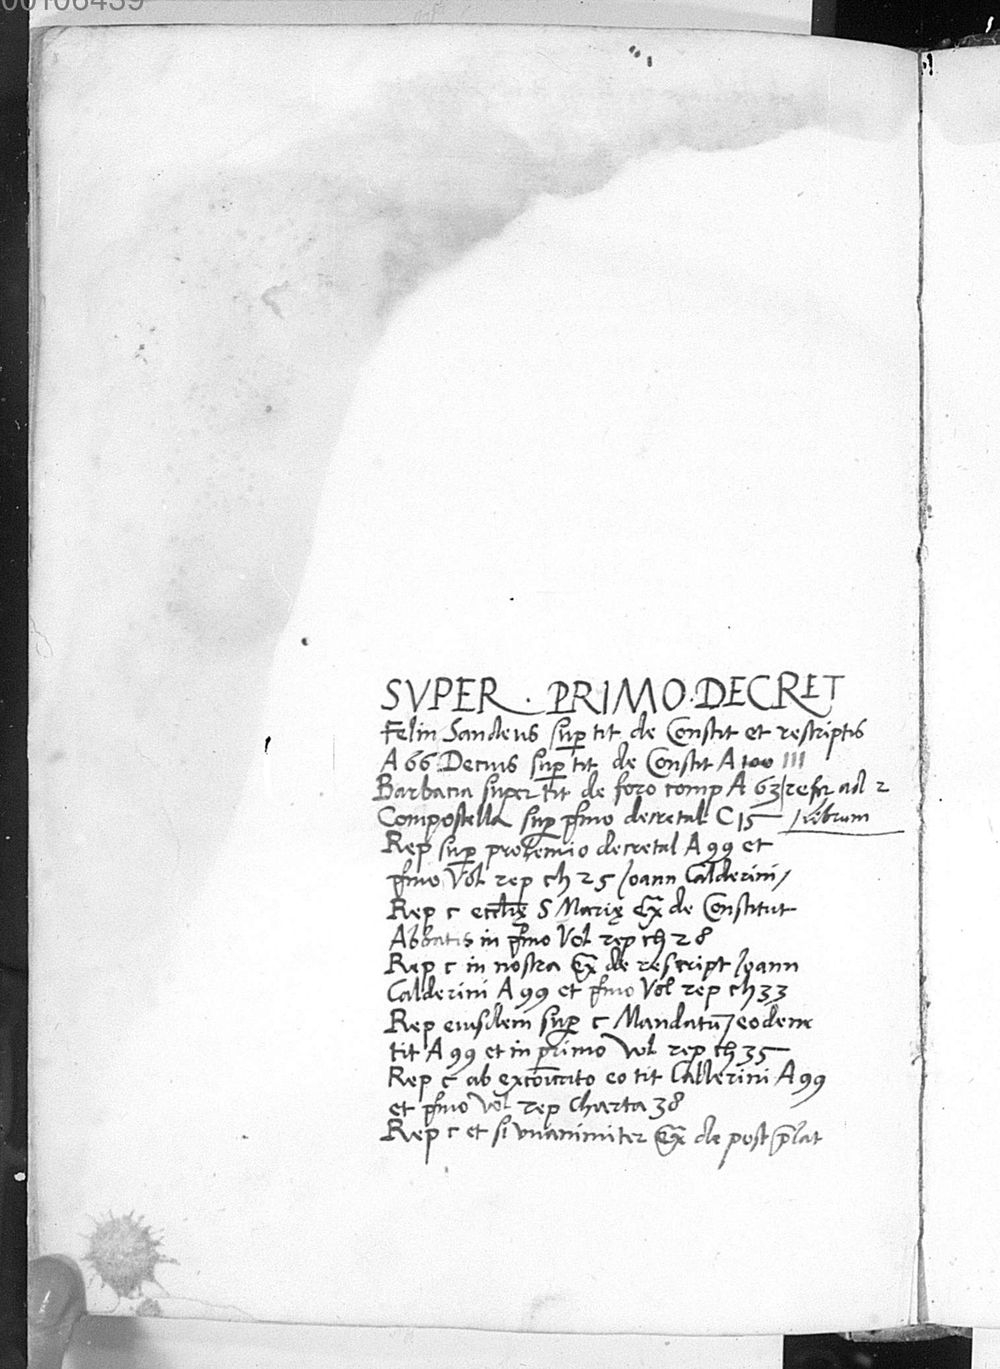 00106439
SVPER . PRIMO . DECRET
Felin Sandeus sup tit de Constit et rescriptis
A 66 Decius sup tit de Constit A 100 III
Barbacia super tit de foro comp A 63 refer ad 2
Compostella sup pimo decretal C 15 librum
Rep sup prohemio decretal A 99 et
pimo Vol rep ch 25 Joann Calderini
Rep c ecclię S Marię Ex de Constitut
Abbatis in pimo Vol rep ch 28
Rep c in nostra Ex de rescript Joann
Calderini A 99 et pimo Vol rep ch 33
Rep eiusdem sup c Mandatū eodem
tit A 99 et in primo Vol rep ch 35
Rep c ab excōicato eo tit Calderini A 99
et pimo Vol rep Charta 38
Rep c et si unanimiter Ex de post plat